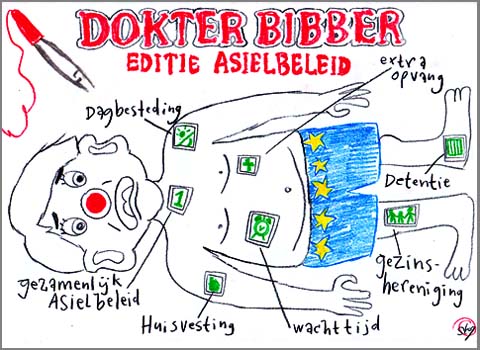 DOKTER BIBBER
EDITIE ASIELBELEID
extra
opvang
Dagbesteding
1
Detentie
gezamenlijk
ASielbeleid
gezins-
hereniging
Huisvesting
wachttijd